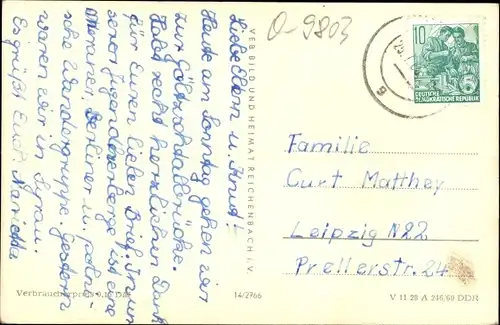 O-9803
10
DEUTSCHE
DEMOKRATISCHE REPUBLIK
Liebe Eltern u. Knut!
Heute am Sonntag gehen wir
zur Göltzschtalbrücke.
Habt recht herzlichen Dank
für Euren lieben Brief. In un
serer Jugendherberge ist eine
Meraner, Berliner u. polni-
sche Wandergruppe. Gestern
waren wir in Syrau.
Es grüßt Euch, Marietta
VEB BILD UND HEIMAT REICHENBACH i. V.
Familie
Curt Matthey
Leipzig N22
Prellerstr. 24
Verbraucherpreis 0,10 DM
14/2766
V 11 28 A 246/60 DDR